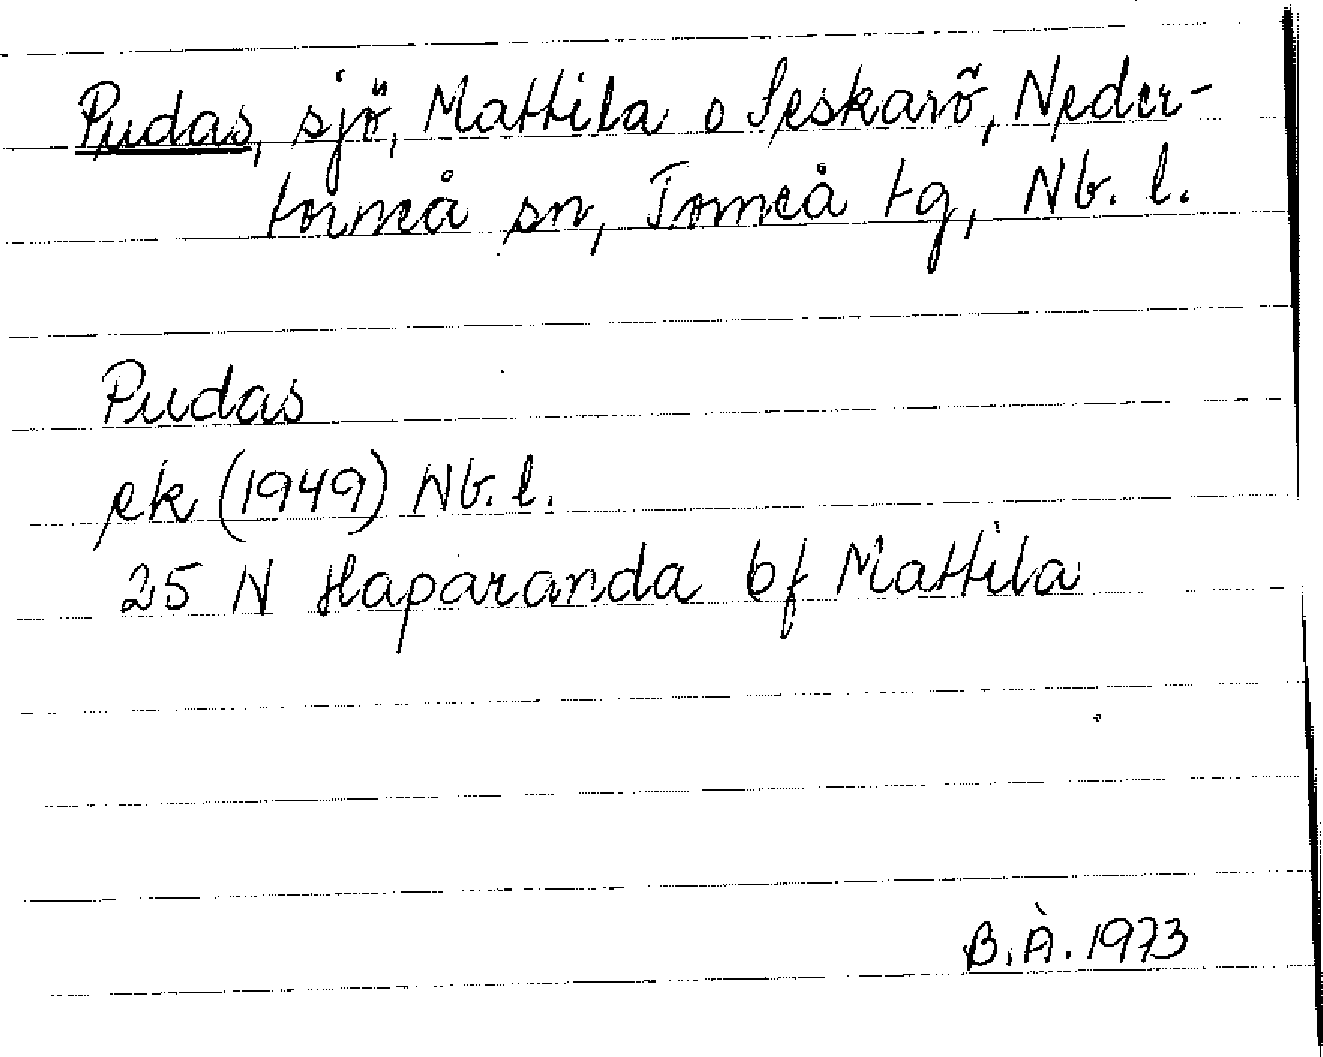 Pudas, sjö, Mattila o Seskarö, Neder-
torneå sn, Torneå tg, Nb. l.
Pudas
ek (1949) Nb. l.
25 N Haparanda bf Mattila
B.Å. 1973